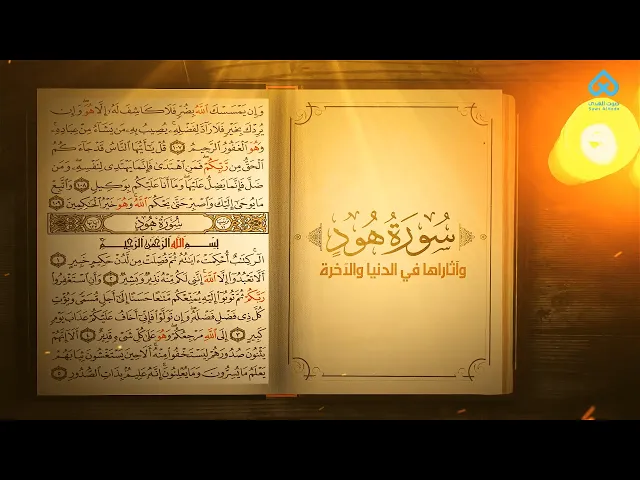 وَإِن يَمْسَسْكَ ٱللَّهُ بِضُرٍّ فَلَا كَاشِفَ لَهُۥٓ إِلَّا هُوَ وَإِن
يُرِدْكَ بِخَيْرٍ فَلَا رَآدَّ لِفَضْلِهِۦ يُصِيبُ بِهِۦ مَن يَشَآءُ مِنْ عِبَادِهِۦ
وَهُوَ ٱلْغَفُورُ ٱلرَّحِيمُ ١٠٧ قُلْ يَٰٓأَيُّهَا ٱلنَّاسُ قَدْ جَآءَكُمُ
ٱلْحَقُّ مِن رَّبِّكُمْ فَمَنِ ٱهْتَدَىٰ فَإِنَّمَا يَهْتَدِى لِنَفْسِهِۦ وَمَن
ضَلَّ فَإِنَّمَا يَضِلُّ عَلَيْهَا وَمَآ أَنَا۠ عَلَيْكُم بِوَكِيلٍ ١٠٨ وَٱتَّبِعْ
مَا يُوحَىٰٓ إِلَيْكَ وَٱصْبِرْ حَتَّىٰ يَحْكُمَ ٱللَّهُ وَهُوَ خَيْرُ ٱلْحَٰكِمِينَ ١٠٩
سُورَةُ هُودٍ
بِسْمِ ٱللَّهِ ٱلرَّحْمَٰنِ ٱلرَّحِيمِ
الٓر كِتَٰبٌ أُحْكِمَتْ ءَايَٰتُهُۥ ثُمَّ فُصِّلَتْ مِن لَّدُنْ حَكِيمٍ خَبِيرٍ ١
أَلَّا تَعْبُدُوٓا۟ إِلَّا ٱللَّهَ إِنَّنِى لَكُم مِّنْهُ نَذِيرٌ وَبَشِيرٌ ٢ وَأَنِ ٱسْتَغْفِرُوا۟
رَبَّكُمْ ثُمَّ تُوبُوٓا۟ إِلَيْهِ يُمَتِّعْكُم مَّتَٰعًا حَسَنًا إِلَىٰٓ أَجَلٍ مُّسَمًّى وَيُؤْتِ
كُلَّ ذِى فَضْلٍ فَضْلَهُۥ وَإِن تَوَلَّوْا۟ فَإِنِّىٓ أَخَافُ عَلَيْكُمْ عَذَابَ يَوْمٍ
كَبِيرٍ ٣ إِلَى ٱللَّهِ مَرْجِعُكُمْ وَهُوَ عَلَىٰ كُلِّ شَىْءٍ قَدِيرٌ ٤ أَلَآ إِنَّهُمْ
يَثْنُونَ صُدُورَهُمْ لِيَسْتَخْفُوا۟ مِنْهُ أَلَا حِينَ يَسْتَغْشُونَ ثِيَابَهُمْ
يَعْلَمُ مَا يُسِرُّونَ وَمَا يُعْلِنُونَ إِنَّهُۥ عَلِيمٌۢ بِذَاتِ ٱلصُّدُورِ ٥
سُورَةُ هُودٍ
وآثاراها في الدنيا والآخرة
صوت الهدى